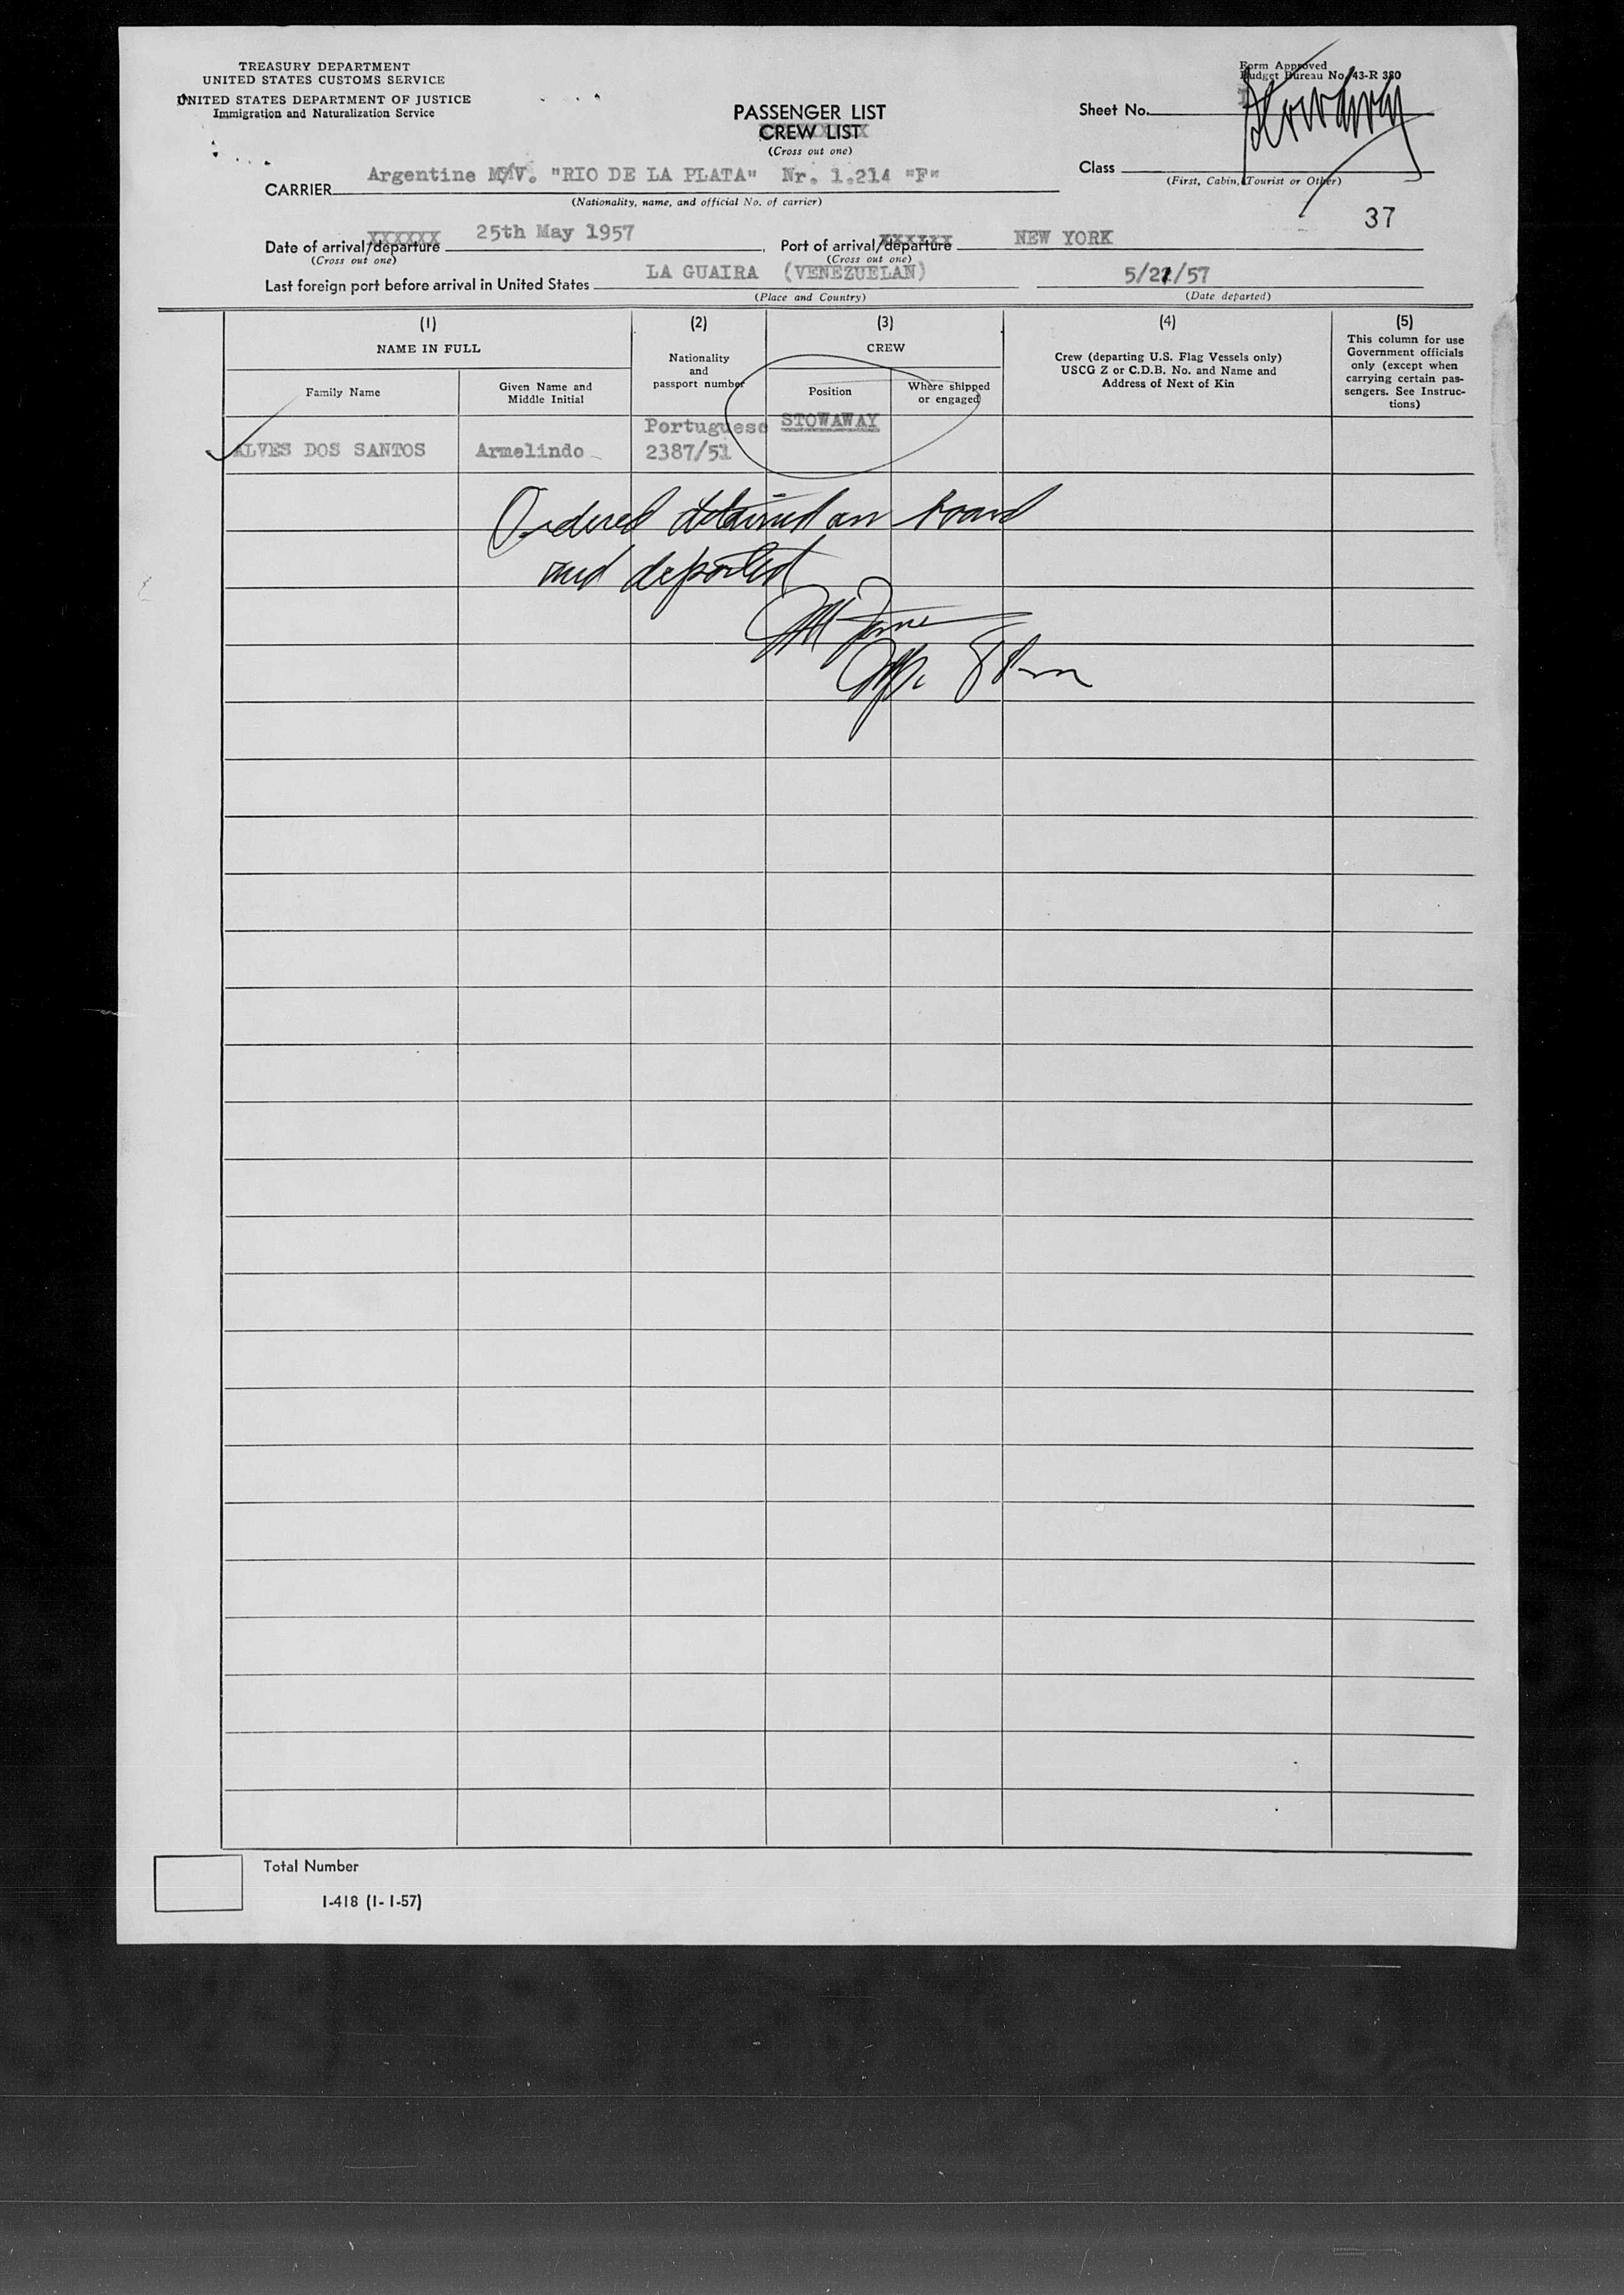 TREASURY DEPARTMENT
UNITED STATES CUSTOMS SERVICE
UNITED STATES DEPARTMENT OF JUSTICE
Immigration and Naturalization Service
Form Approved
Budget Bureau No. 43-R 380
PASSENGER LIST
CREW LIST
(Cross out one)
Sheet No.
Stowaway
Class
(First, Cabin, Tourist or Other)
CARRIER Argentine M/V. "RIO DE LA PLATA" Nr. 1.214 "F"
(Nationality, name, and official No. of carrier)
37
Date of arrival/departure 25th May 1957, Port of arrival/departure NEW YORK
(Cross out one) (Cross out one)
Last foreign port before arrival in United States LA GUAIRA (VENEZUELAN) 5/21/57
(Place and Country) (Date departed)
(1) (2) (3) (4) (5)
NAME IN FULL
Family Name
Given Name and
Middle Initial
Nationality
and
passport number
CREW
Position
Where shipped
or engaged
Crew (departing U.S. Flag Vessels only)
USCG Z or C.D.B. No. and Name and
Address of Next of Kin
This column for use
Government officials
only (except when
carrying certain pas-
sengers. See Instruc-
tions)
Portuguese STOWAWAY
ALVES DOS SANTOS Armelindo 2387/51
Ordered detained on board
and deported
Total Number
I-418 (1-1-57)